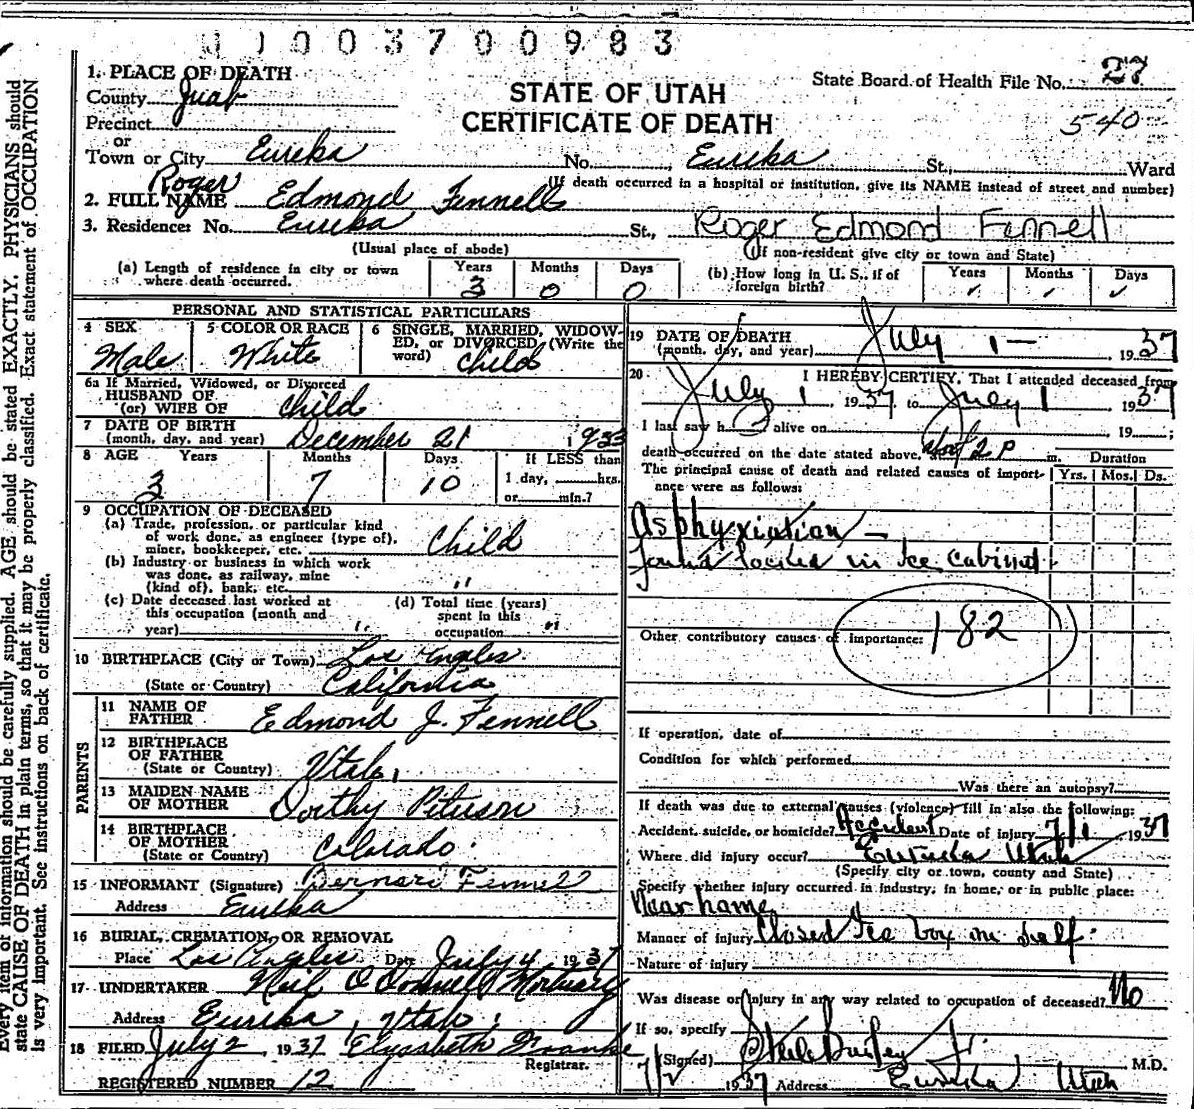 1100370 0983
1. PLACE OF DEATH
County Juab
STATE OF UTAH
State Board of Health File No. 27
Precinct
CERTIFICATE OF DEATH
540
or
Town or City Eureka No. Eureka St., Ward
(If death occurred in a hospital or institution, give its NAME instead of street and number)
Roger
2. FULL NAME Edmond Fennell
3. Residence: No. Eureka St., Roger Edmond Fennell
(Usual place of abode)
(If non-resident give city or town and State)
(a) Length of residence in city or town where death occurred. Years 3 Months 0 Days 0
(b) How long in U. S., if of foreign birth? Years Months Days
PERSONAL AND STATISTICAL PARTICULARS
4 SEX Male
5 COLOR OR RACE White
6 SINGLE, MARRIED, WIDOWED, or DIVORCED (Write the word) Child
6a If Married, Widowed, or Divorced
HUSBAND OF
(or) WIFE OF Child
7 DATE OF BIRTH
(month, day, and year) December 21 1933
8 AGE Years 3 Months 7 Days 10 If LESS than 1 day, hrs. or min.?
9 OCCUPATION OF DECEASED
(a) Trade, profession, or particular kind
of work done, as engineer (type of),
miner, bookkeeper, etc. Child
(b) Industry or business in which work
was done, as railway, mine
(kind of), bank, etc. "
(c) Date deceased last worked at
this occupation (month and
year) "
(d) Total time (years)
spent in this
occupation "
10 BIRTHPLACE (City or Town) Los Angles
(State or Country) California
PARENTS
11 NAME OF
FATHER Edmond J. Fennell
12 BIRTHPLACE
OF FATHER
(State or Country) Utah
13 MAIDEN NAME
OF MOTHER Dorthy Peterson
14 BIRTHPLACE
OF MOTHER
(State or Country) Colorado
15 INFORMANT (Signature) Bernard Fennell
Address Eureka
16 BURIAL, CREMATION, OR REMOVAL
Place Los Angles Date July 4 1937
17 UNDERTAKER Neil O'Donnell Mortuary
Address Eureka, Utah
18 FILED July 2, 1937 Elysabeth Franke
Registrar.
REGISTERED NUMBER 12
19 DATE OF DEATH
(month, day, and year) July 1 - , 1937
20 I HEREBY CERTIFY, That I attended deceased from
July 1 1937 to July 1 1937
I last saw h alive on , 19 ;
death occurred on the date stated above, at 2 P m.
The principal cause of death and related causes of importance were as follows:
Duration
Yrs. Mos. Ds.
Asphyxiation -
found locked in Ice Cabinet
Other contributory causes of importance: 182
If operation, date of
Condition for which performed
Was there an autopsy?
If death was due to external causes (violence) fill in also the following:
Accident, suicide, or homicide? Accident Date of injury 7/1 1937
Where did injury occur? Eureka Utah
(Specify city or town, county and State)
Specify whether injury occurred in industry, in home, or in public place:
Near home
Manner of injury Closed Ice box on self.
Nature of injury
Was disease or injury in any way related to occupation of deceased? No
If so, specify
(Signed) Steele Bailey Jr. M.D.
7/2 1937 Address Eureka Utah
Every item of information should be carefully supplied. AGE should be stated EXACTLY. PHYSICIANS should
state CAUSE OF DEATH in plain terms, so that it may be properly classified. Exact statement of OCCUPATION
is very important. See instructions on back of certificate.